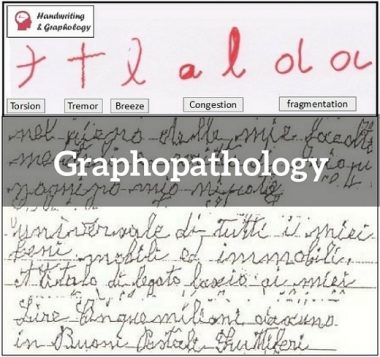 Handwriting
& Graphology
t t l a l a a
Torsion Tremor Breeze Congestion fragmentation
nel pieno delle mie facoltà
Graphopathology
nomino mio nipote
universale di tutti i miei
beni mobili ed immobili.
A titolo di legato lascio ai miei
Lire Cinque milioni ciascuno
in Buoni Postali Fruttiferi